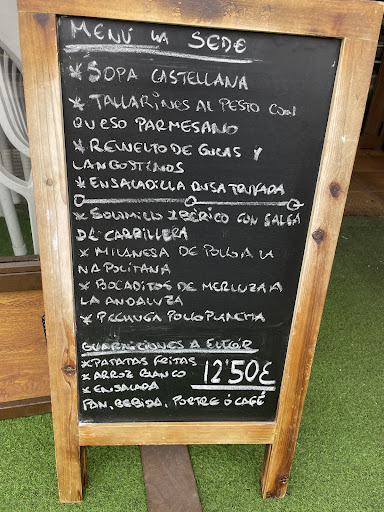 MENÚ LA SEDE
* SOPA CASTELLANA
* TALLARINES AL PESTO CON
QUESO PARMESANO
* REVUELTO DE GULAS Y
LANGOSTINOS
* ENSALADILLA RUSA TRUFADA
* SOLOMILLO IBÉRICO CON SALSA
DE CARRILLERA
* MILANESA DE POLLO A LA
NAPOLITANA
* BOCADITOS DE MERLUZA A
LA ANDALUZA
* PECHUGA POLLO PLANCHA
GUARNICIONES A ELEGIR
* PATATAS FRITAS
* ARROZ BLANCO
* ENSALADA
12'50€
PAN, BEBIDA, POSTRE Ó CAFÉ